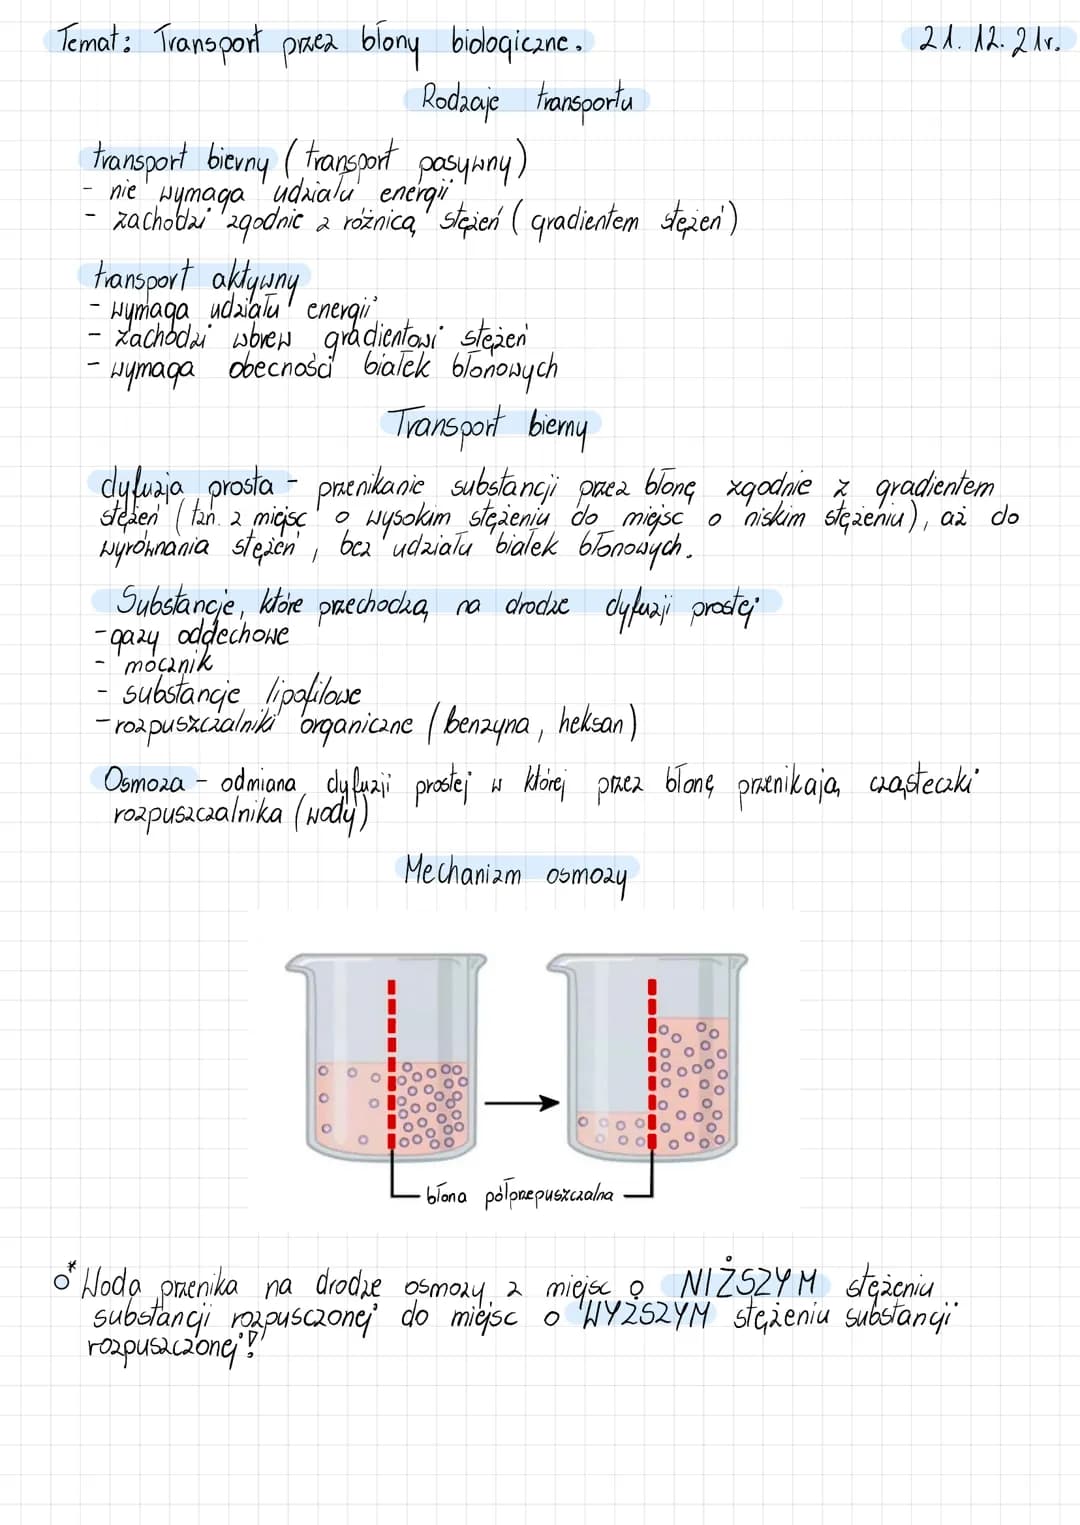 Temat: Transport przez błony biologiczne. 21.12.21r.
Rodzaje transportu
transport bierny (transport pasywny)
- nie wymaga udziału energii
- zachodzi zgodnie z różnicą stężeń (gradientem stężeń)
transport aktywny
- wymaga udziału energii
- zachodzi wbrew gradientowi stężeń
- wymaga obecności białek błonowych
Transport bierny
dyfuzja prosta - przenikanie substancji przez błonę zgodnie z gradientem
stężeń (tzn. z miejsc o wysokim stężeniu do miejsc o niskim stężeniu), aż do
wyrównania stężeń, bez udziału białek błonowych.
Substancje, które przechodzą na drodze dyfuzji prostej
- gazy oddechowe
- mocznik
- substancje lipofilowe
- rozpuszczalniki organiczne (benzyna, heksan)
Osmoza - odmiana dyfuzji prostej w której przez błonę przenikają cząsteczki
rozpuszczalnika (wody)
Mechanizm osmozy
błona półprzepuszczalna
* Woda przenika na drodze osmozy z miejsc o NIŻSZYM stężeniu
substancji rozpusczonej do miejsc o WYŻSZYM stężeniu substancji
rozpuszczonej!